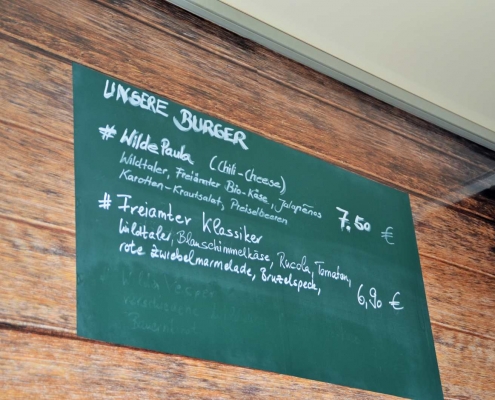 UNSERE BURGER
# Wilde Paula (Chili-Cheese)
Wildtaler, Freiämter Bio-Käse, Jalapeños
Karotten-Krautsalat, Preiselbeeren 7,50 €
# Freiamter Klassiker
Wildtaler, Blauschimmelkäse, Rucola, Tomaten,
rote Zwiebelmarmelade, Bruzelspeck, 6,90 €